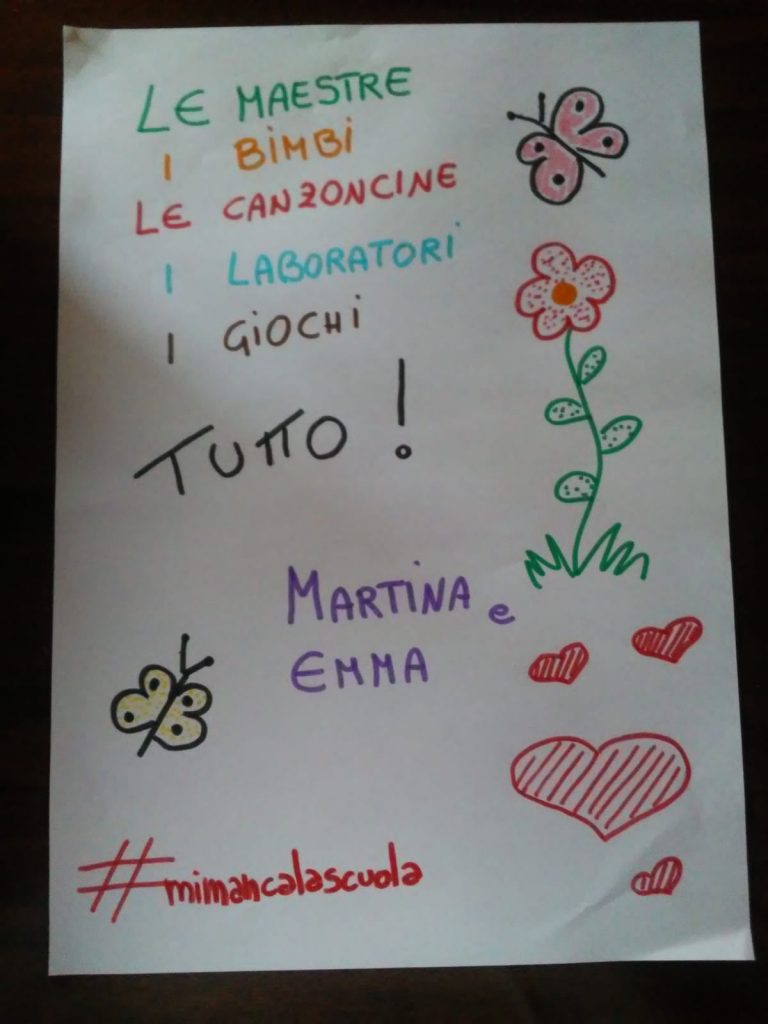 LE MAESTRE
I BIMBI
LE CANZONCINE
I LABORATORI
I GIOCHI
TUTTO!
MARTINA e
EMMA
#mimancalascuola